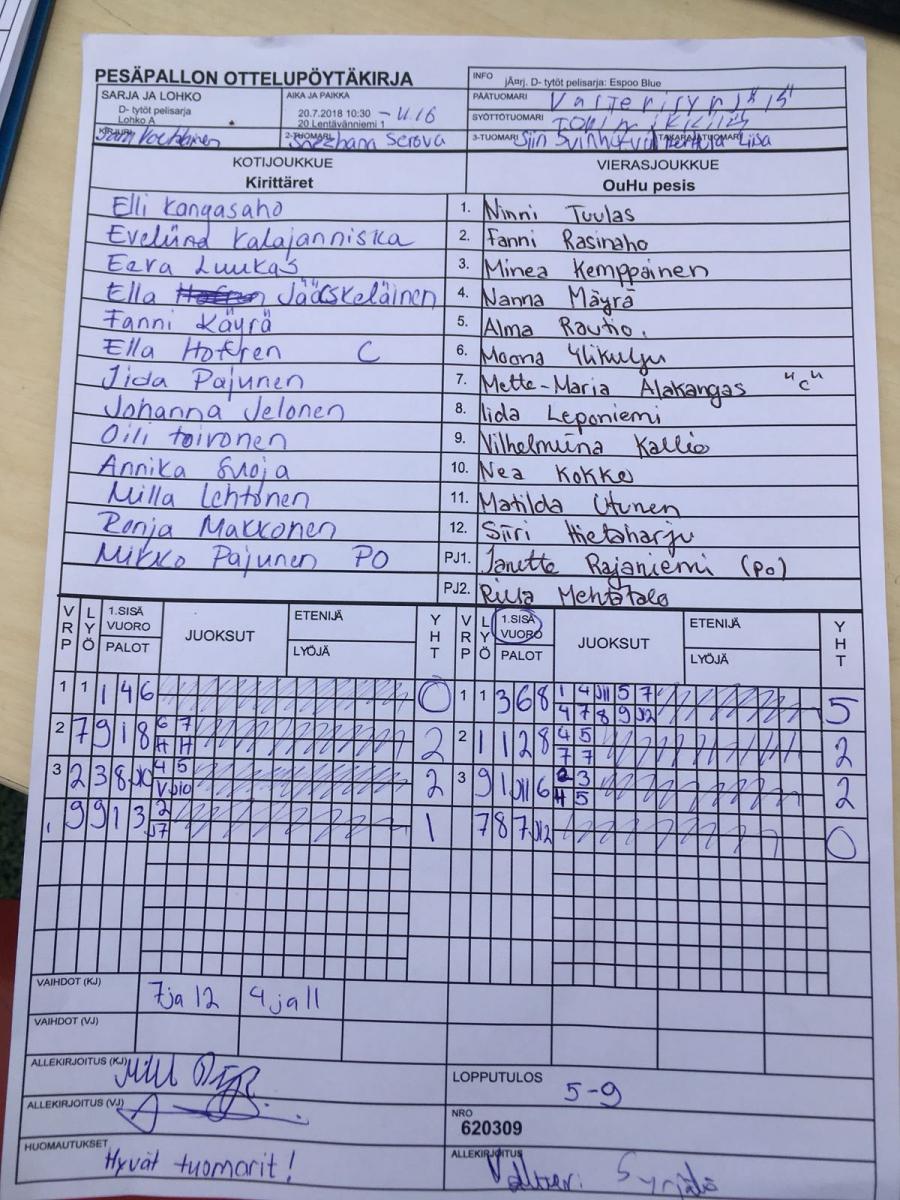 PESÄPALLON OTTELUPÖYTÄKIRJA
INFO jÄarj. D- tytöt pelisarja: Espoo Blue
SARJA JA LOHKO
D- tytöt pelisarja
Lohko A
AIKA JA PAIKKA
20.7.2018 10:30 - 11.16
20 Lentävänniemi 1
PÄÄTUOMARI
SYÖTTÖTUOMARI
KIRJURI
2-TUOMARI Snezhana Serova
3-TUOMARI Siiri TAKARAJATUOMARI Liisa
KOTIJOUKKUE
Kirittäret
VIERASJOUKKUE
OuHu pesis
Elli Kangasaho 1. Ninni Tuulas
Eveliina Kalajanniska 2. Fanni Rasinaho
Eeva Luukas 3. Minea Kemppainen
Ella Jääskeläinen 4. Nanna Mäyrä
Fanni Käyrä 5. Alma Rautio
Ella Hofren C 6. Moona Ylikulju
Iida Pajunen 7. Mette-Maria Alakangas "C"
Johanna Jelonen 8. Iida Leponiemi
Oili toivonen 9. Vilhelmiina Kallio
Annika Suoja 10. Nea Kokko
Milla Lehtonen 11. Matilda Utunen
Ronja Makkonen 12. Siiri Hietaharju
Mikko Pajunen PO PJ1. Janette Rajaniemi (PO)
PJ2. Riisa Mehtätalo
VRP LYÖ 1.SISÄ VUORO PALOT JUOKSUT ETENIJÄ LYÖJÄ YHT VRP LYÖ 1.SISÄ VUORO PALOT JUOKSUT ETENIJÄ LYÖJÄ YHT
1 1 1 4 6 0 1 1 3 6 8 1 4 J11 5 7 5
4 7 8 9 J12
2 7 9 1 8 6 7 2 2 1 1 2 8 4 5 2
7 7
3 2 3 8 J10 4 5 2 3 9 1 J11 6 2 3 2
V J10 4 5
9 9 1 3 2 1 7 8 7 J12 0
J7
VAIHDOT (KJ) 7 ja 12 4 ja 11
VAIHDOT (VJ)
ALLEKIRJOITUS (KJ)
LOPPUTULOS 5-9
ALLEKIRJOITUS (VJ)
NRO
620309
HUOMAUTUKSET Hyvät tuomarit!
ALLEKIRJOITUS Valtteri Syrjälä